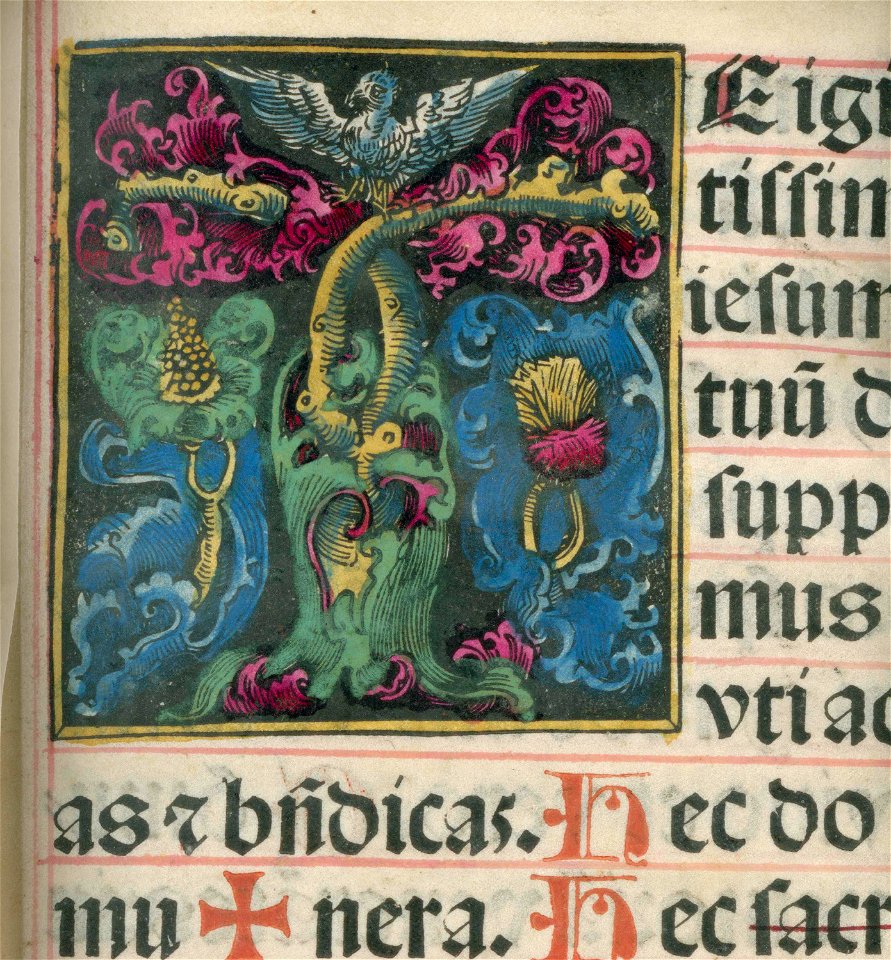 T Eigi
tissim
iesum
tuū d
supp
mus
vti ac
as ⁊ bn̄dicas. Hec do
mu ✠ nera. Hec sacr